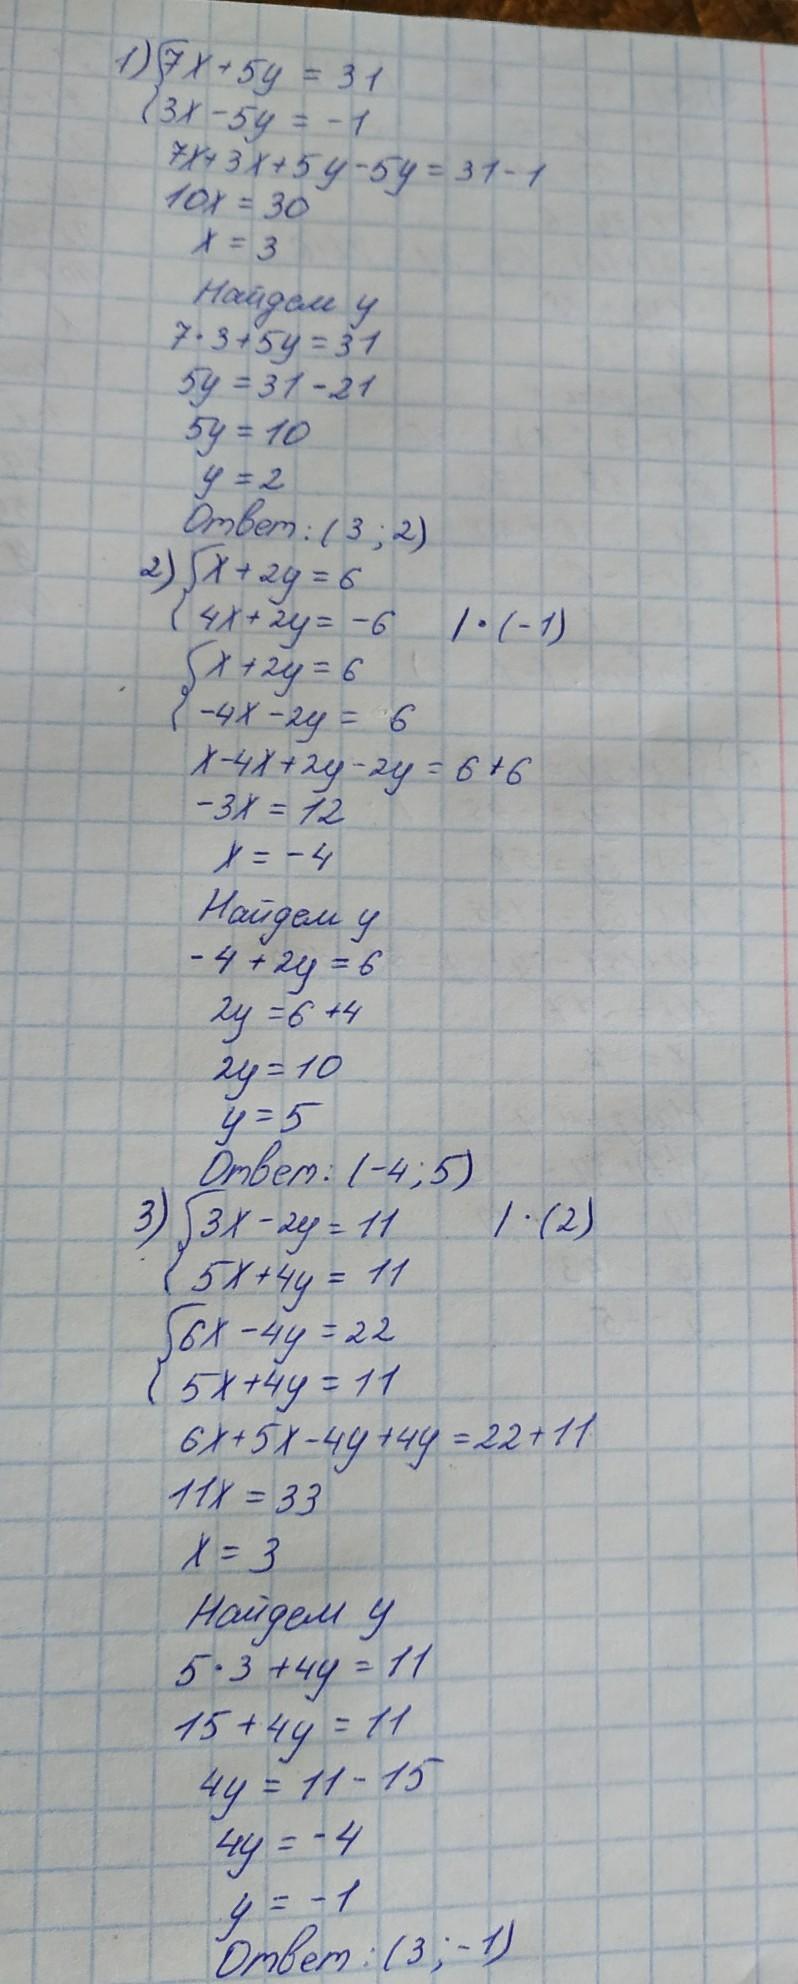 1) { 7x + 5y = 31
{ 3x - 5y = -1
7x + 3x + 5y - 5y = 31 - 1
10x = 30
x = 3
Найдем y
7·3 + 5y = 31
5y = 31 - 21
5y = 10
y = 2
Ответ: (3; 2)
2) { x + 2y = 6
{ 4x + 2y = -6 | · (-1)
{ x + 2y = 6
{ -4x - 2y = 6
x - 4x + 2y - 2y = 6 + 6
-3x = 12
x = -4
Найдем y
-4 + 2y = 6
2y = 6 + 4
2y = 10
y = 5
Ответ: (-4; 5)
3) { 3x - 2y = 11 | · (2)
{ 5x + 4y = 11
{ 6x - 4y = 22
{ 5x + 4y = 11
6x + 5x - 4y + 4y = 22 + 11
11x = 33
x = 3
Найдем y
5·3 + 4y = 11
15 + 4y = 11
4y = 11 - 15
4y = -4
y = -1
Ответ: (3; -1)